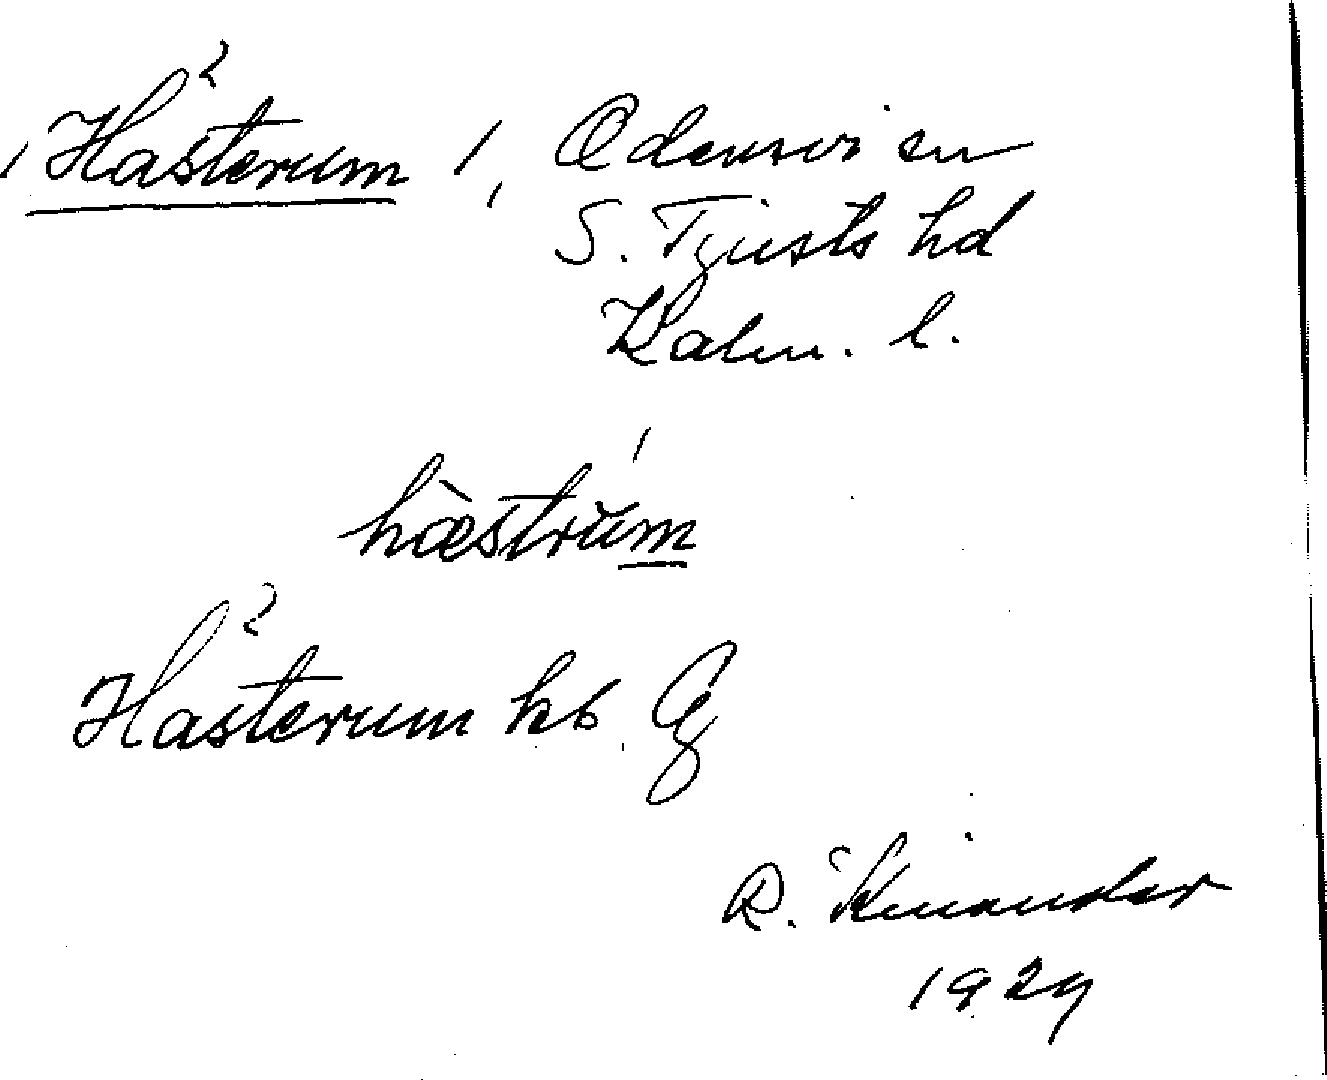 Hästerum 1, Odensvi sn
S. Tjusts hd
Kalm. l.
hæ̀strum
Hästerum kb.
R. Kinander
1929